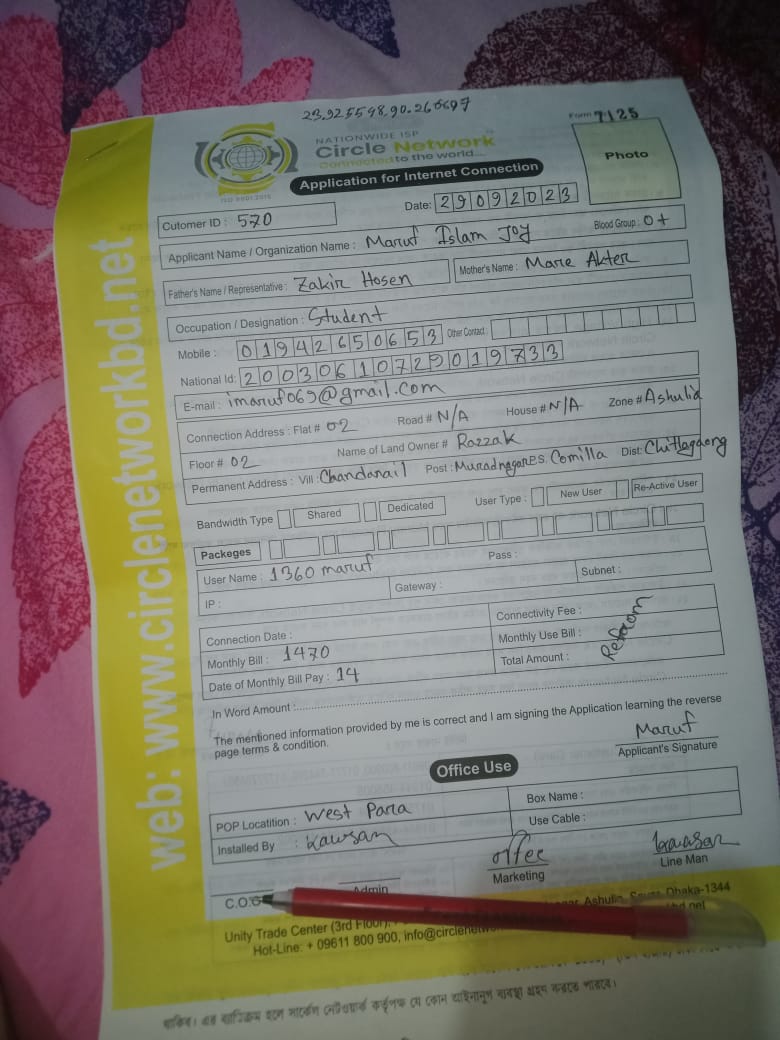 23.925598,90.266697
Form 7125
NATIONWIDE ISP
Circle Network
Connected to the world...
ISO 9001:2015
Photo
Application for Internet Connection
Cutomer ID : 570 Date: 29092023
Applicant Name / Organization Name : Maruf Islam Joy Blood Group : O+
Father's Name / Representative : Zakir Hosen Mother's Name : Marie Akter
Occupation / Designation : Student
Mobile : 01942650653 Other Contact :
National Id: 20030610729019733
E-mail : imaruf069@gmail.com
Connection Address : Flat # 02 Road # N/A House # N/A Zone # Ashulia
Floor # 02 Name of Land Owner # Razzak
Permanent Address : Vill : Chandanail Post : Muradnagar P.S. Comilla Dist: Chittagong
Bandwidth Type Shared Dedicated User Type : New User Re-Active User
Packeges
User Name : 1360 maruf Pass :
IP : Gateway : Subnet :
Connection Date : Connectivity Fee :
Monthly Bill : 1470 Monthly Use Bill :
Date of Monthly Bill Pay : 14 Total Amount :
In Word Amount :
The mentioned information provided by me is correct and I am signing the Application learning the reverse
page terms & condition.
Maruf
Applicant's Signature
Office Use
POP Locatition : West Para Box Name :
Installed By : Kawsar Use Cable :
offee Kawsar
C.O.O Admin Marketing Line Man
Unity Trade Center (3rd Floor), Ashulia, Savar, Dhaka-1344
Hot-Line: + 09611 800 900, info@circlenetworkbd.net
web: www.circlenetworkbd.net
থাকিব। এর ব্যতিক্রম হলে সার্কেল নেটওয়ার্ক কর্তৃপক্ষ যে কোন আইনানুগ ব্যবস্থা গ্রহন করতে পারবে।